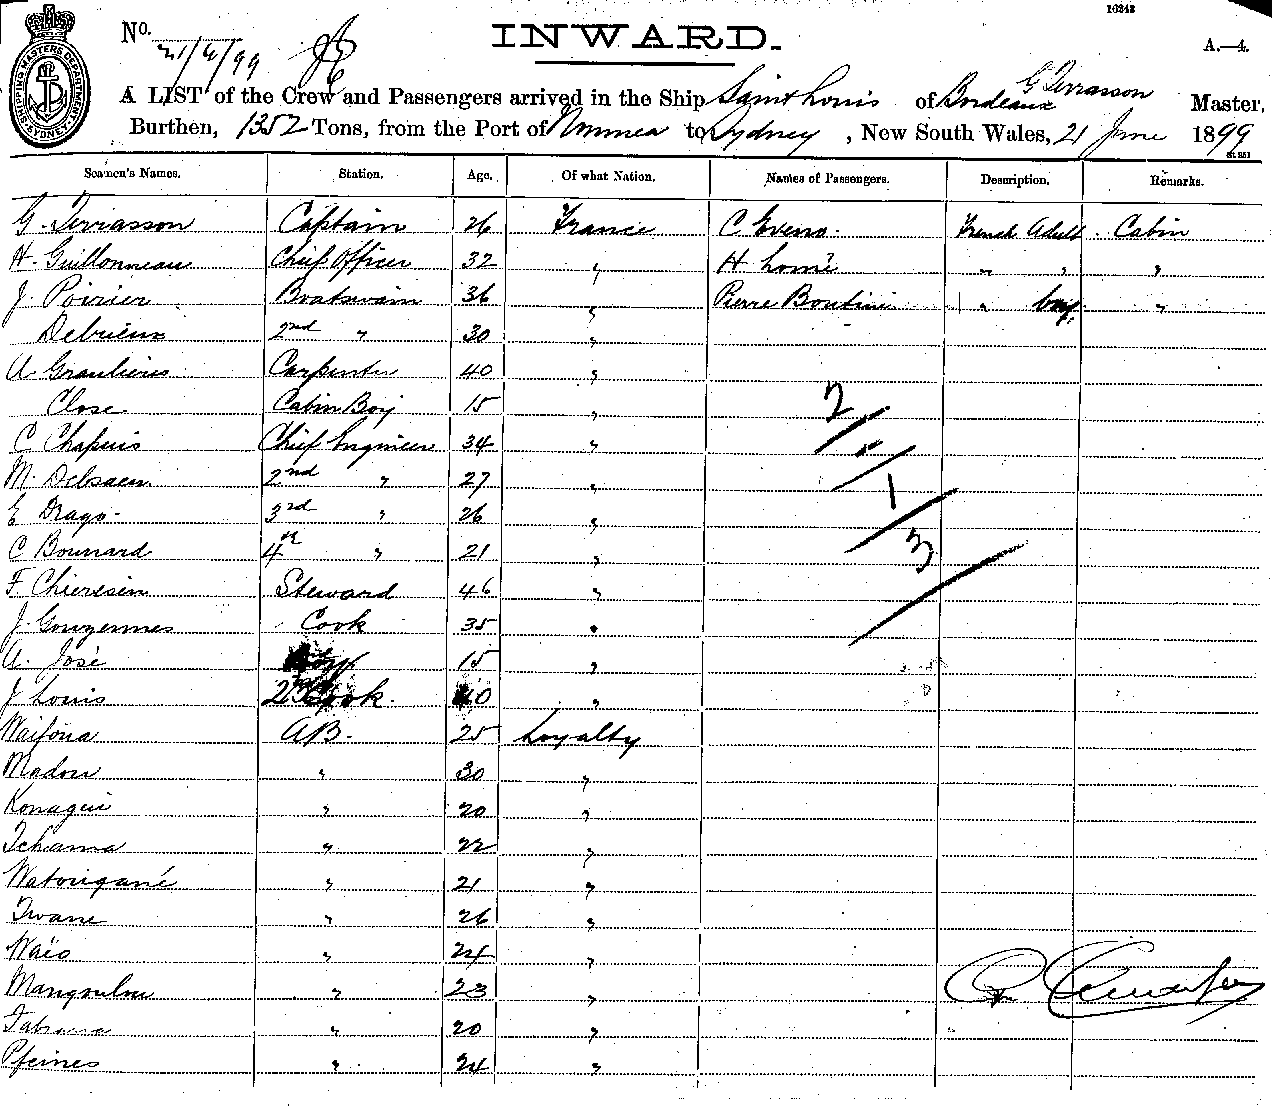 10243
No. 21/6/99
INWARD.
A.—4.
SHIPPING MASTERS DEPARTMENT SYDNEY
G Terrasson
A LIST of the Crew and Passengers arrived in the Ship Saint Louis of Bordeaux Master,
Burthen, 1352 Tons, from the Port of Noumea to Sydney, New South Wales, 21 June 1899
Seamen's Names. Station. Age. Of what Nation. Names of Passengers. Description. Remarks.
G. Terrasson Captain 26 France C Eveno. French Adult. Cabin
H. Guillonneau Chief Officer 32 " H Lomé " " "
J. Poirier Boatswain 36 " Pierre Boutini " boy. "
Debrieux 2nd " 30 "
A. Graulieres Carpenter 40 "
Close Cabin Boy 15 "
C Chapuis Chief Engineer 34 "
M. Debsaen 2nd " 27 "
E Drago. 3rd " 26 "
C Bonnard 4th " 21 "
F Chieresin Steward 46 "
J. Gouzermes Cook 35 "
A. José Boy 15 "
J Louis 2nd Cook. 40 "
Waifona AB. 25 Loyalty
Madou " 30 "
Konagui " 20 "
Tchama " 22 "
Watougané " 21 "
Twane " 26 "
Waïo " 24 "
Mangoulou " 23 "
" 20 "
Pfeines " 24 "
2
1
3